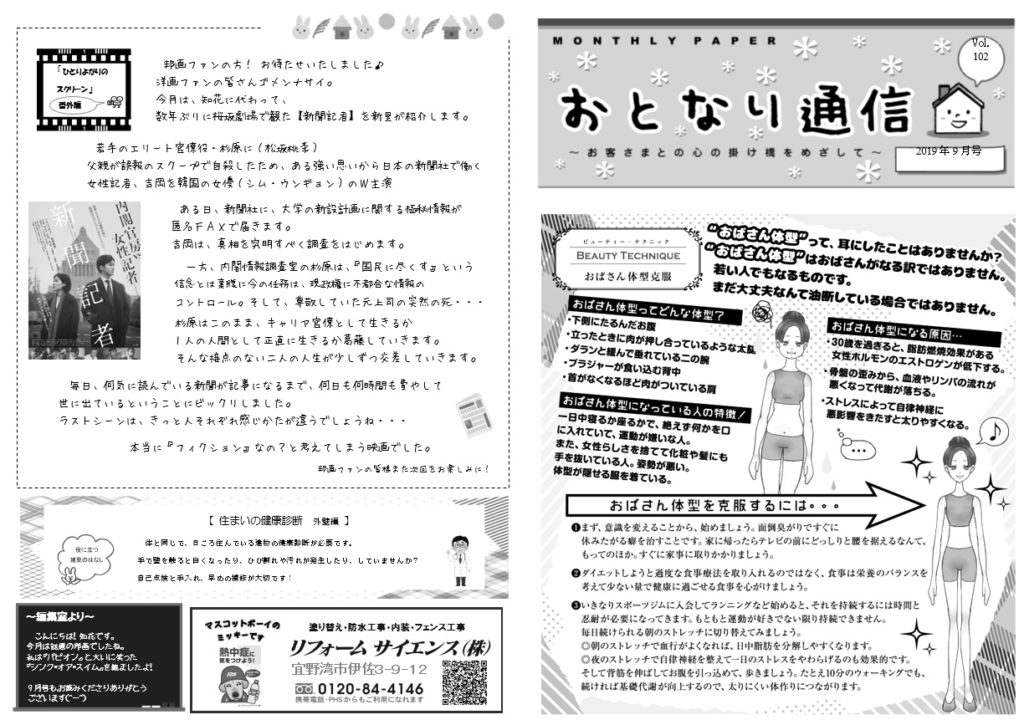 「ひとりよがりの
スクリーン」
番外編
邦画ファンの方! お待たせいたしました♪
洋画ファンの皆さんゴメンナサイ。
今月は、知花に代わって、
数年ぶりに桜坂劇場で観た【新聞記者】を新里が紹介します。
若手のエリート官僚役・杉原に(松坂桃李)
父親が誤報のスクープで自殺したため、ある強い思いから日本の新聞社で働く
女性記者、吉岡を韓国の女優(シム・ウンギョン)のW主演
内閣官房
女性記者
新聞記者
ある日、新聞社に、大学の新設計画に関する極秘情報が
匿名FAXで届きます。
吉岡は、真相を究明すべく調査をはじめます。
一方、内閣情報調査室の杉原は、『国民に尽くす』という
信念とは裏腹に今の任務は、現政権に不都合な情報の
コントロール。そして、尊敬していた元上司の突然の死・・・
杉原はこのまま、キャリア官僚として生きるか
1人の人間として正直に生きるか葛藤していきます。
そんな接点のない二人の人生が少しずつ交差していきます。
毎日、何気に読んでいる新聞が記事になるまで、何日も何時間も費やして
世に出ているということにビックリしました。
ラストシーンは、きっと人それぞれ感じかたが違うでしょうね・・・
本当に『フィクション』なの?と考えてしまう映画でした。
邦画ファンの皆様また次回をお楽しみに!
役に立つ
建築のはなし
【 住まいの健康診断 外壁編 】
体と同じで、日ごろ住んでいる建物の健康診断が必要です。
手で壁を触ると白くなったり、ひび割れや汚れが発生したり、していませんか?
自己点検と手入れ、早めの補修が大切です!
~編集室より~
こんにちは! 知花です。
今月は話題の邦画でしたね。
9月号もお読みくださりありがとう
ございます(^-^)
マスコットボーイの
ミッキーです
熱中症に
気をつけよう!
塗り替え・防水工事・内装・フェンス工事
リフォームサイエンス(株)
宜野湾市伊佐3-9-12
0120-84-4146
携帯電話・PHSからもご利用になれます
MONTHLY PAPER
Vol.
102
おとなり通信
~お客さまとの心の掛け橋をめざして~
2019年9月号
ビューティー・テクニック
BEAUTY TECHNIQUE
おばさん体型克服
“おばさん体型”って、耳にしたことはありませんか?
“おばさん体型”はおばさんがなる訳ではありません。
若い人でもなるものです。
まだ大丈夫なんて油断している場合ではありません。
おばさん体型ってどんな体型?
・下側にたるんだお腹
・立ったときに肉が押し合っているような太ももし
・ダランと緩んで垂れている二の腕
・ブラジャーが食い込む背中
・首がなくなるほど肉がついている肩
おばさん体型になっている人の特徴!
一日中寝るか座るかで、絶えず何かを口
に入れていて、運動が嫌いな人。
また、女性らしさを捨てて化粧や髪にも
手を抜いている人。姿勢が悪い。
体型が隠せる服を着ている。
おばさん体型になる原因…
・30歳を過ぎると、脂肪燃焼効果がある
女性ホルモンのエストロゲンが低下する。
・骨盤の歪みから、血液やリンパの流れが
悪くなって代謝が落ちる。
・ストレスによって自律神経に
悪影響をきたすと太りやすくなる。
おばさん体型を克服するには・・・
❶まず、意識を変えることから、始めましょう。面倒臭がりですぐに
休みたがる癖を治すことです。家に帰ったらテレビの前にどっしりと腰を据えるなんて、
もってのほか。すぐに家事に取りかかりましょう。
❷ダイエットしようと過度な食事療法を取り入れるのではなく、食事は栄養のバランスを
考えて少ない量で健康に過ごせる食事を心がけましょう。
❸いきなりスポーツジムに入会してランニングなど始めると、それを持続するには時間と
忍耐が必要になってきます。もともと運動が好きでない限り持続できません。
毎日続けられる朝のストレッチに切り替えてみましょう。
◎朝のストレッチで血行がよくなれば、日中脂肪を分解しやすくなります。
◎夜のストレッチで自律神経を整えて一日のストレスをやわらげるのも効果的です。
そして背筋を伸ばしてお腹を引っ込めて、歩きましょう。たとえ10分のウォーキングでも、
続ければ基礎代謝が向上するので、太りにくい体作りにつながります。